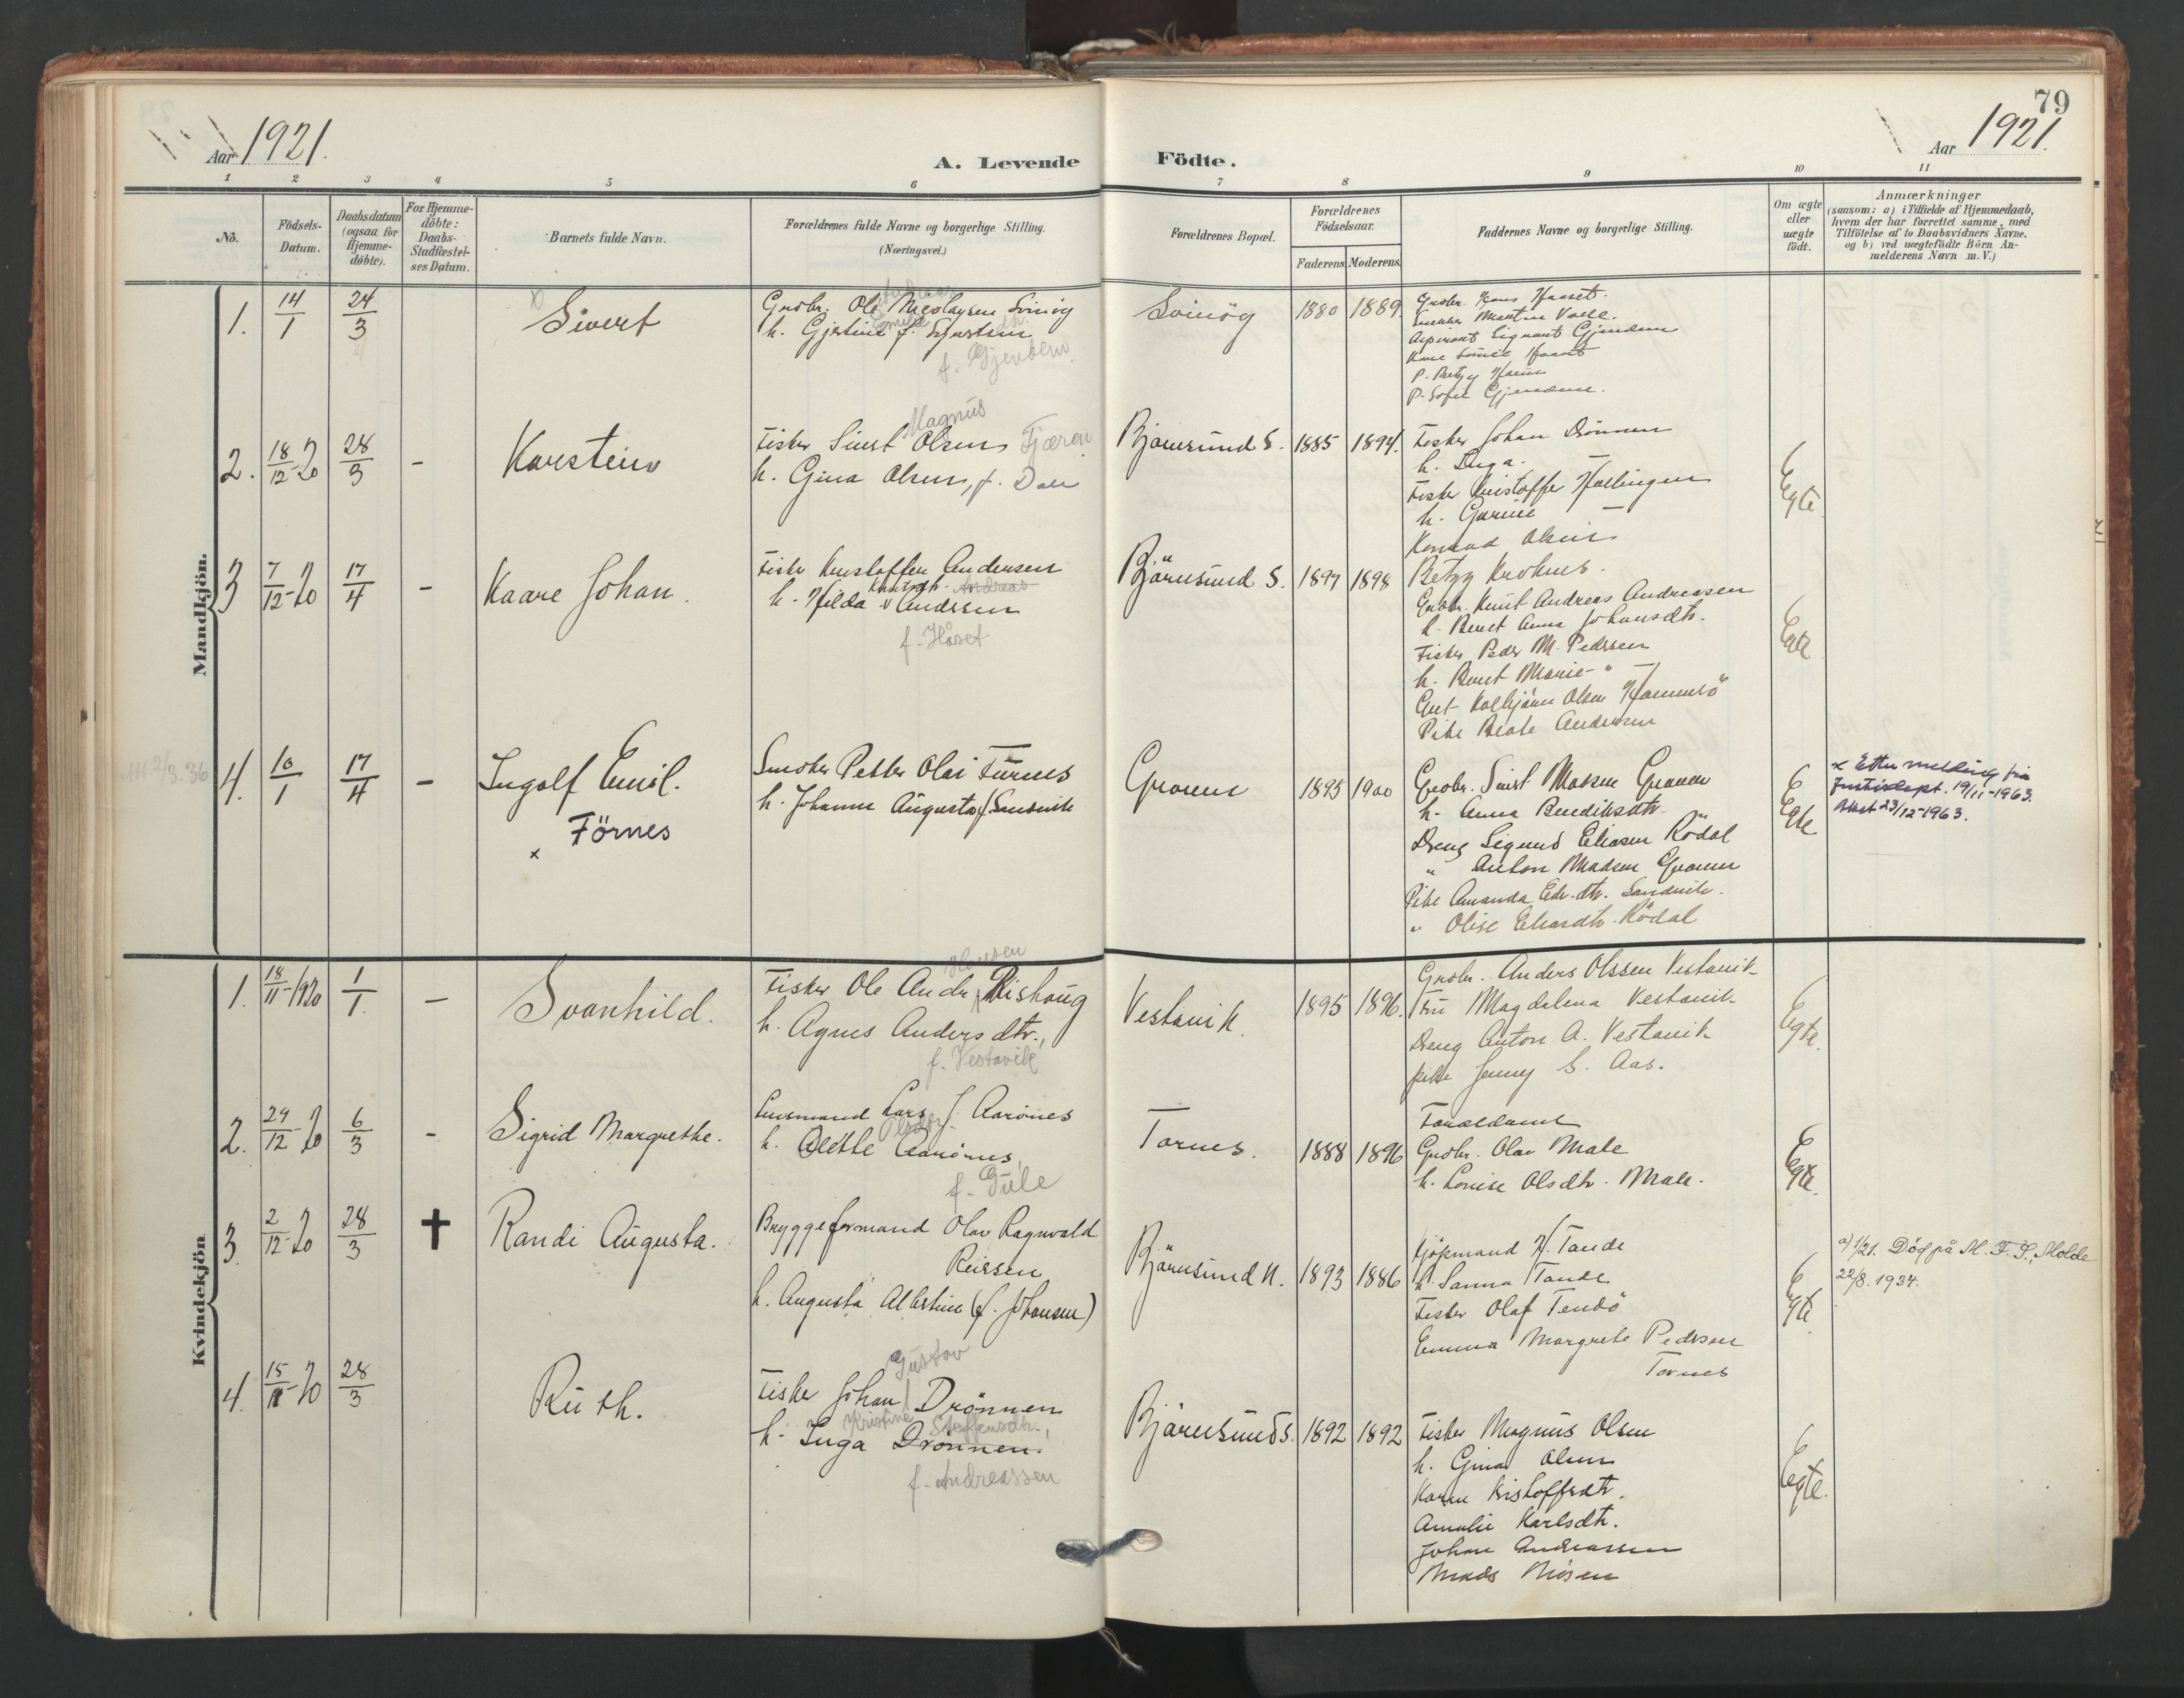 79
Aar 1921.
A. Levende
Födte.
Aar 1921.
1 2 3 4 5 6 7 8 9 10 11
No.
Födsels-
Datum.
Daabsdatum
(ogsaa for
Hjemme-
döbte).
For Hjemme-
döbte:
Daabs-
Stadfæstel-
ses Datum.
Barnets fulde Navn.
Forældrenes fulde Navne og borgerlige Stilling.
(Næringsvei.)
Forældrenes Bopæl.
Forældrenes
Födselsaar.
Faderens. Moderens.
Faddernes Navne og borgerlige Stilling.
Om ægte
eller
uægte
födt.
Anmærkninger
(saasom: a) i Tilfælde af Hjemmedaab,
hvem der har forrettet samme, med
Tilföielse af to Daabsvidners Navne.
og b) ved uægtefödte Börn An-
melderens Navn m. V.)
Mandkjön.
1. 14/1 24/3 Sivert
Grobr. Ole Nicolaysen Svinöy
h. Gjertine f.
f. Gjendem
Svinöy 1880 1889.
Aspirant Sigvart Gjendem
P. Sofie Gjendem.
2. 18/12-20 28/3 - Karstein
Magnus
Fisker Sivert Olsen Fjæren
h. Gina Olsen, f. Dale
Bjørnsund S. 1885 1894.
Fisker Johan Drönnen
h. Inga.
Fisker Kristoffer
h.
Konrad Olsen
Betzy Krohnes.
Egte
3 7/12-20 17/4 - Kaare Johan.
Fisker Kristoffer Andersen
Knutsdh. Andreas
h. Hilda Andersen
f. Håset
Björnsund S. 1897 1898
Grobr. Knut Andreas Andreassen
h. Beret Anna Johansdtr.
Fisker Peder M. Pedersen
h. Beret Marie - "
Gut Kolbjörn Olsen
Pike Beate Andersen
Egte
4. 10/1 17/4 - Ingolf Emil.
x Förnes
Smobr. Petter Olai Furnes
h. Johanna Augusta f. Sandvik
Groven 1895 1900
Grobr. Sivert Madsen Groven
h. Anna Bendiksdtr.
Dreng Sigurd Eliasen Rödal
" Anton Madsen Groven
Pike Amanda Edv.dtr. Sandvik.
" Olise Eliasdtr. Rödal
Egte
x Etter melding fra
Justisdept. 19/11-1963.
Attest 23/12-1963.
Att. 2/3-36
Kvindekjön
1. 18/11-1920 1/1. - Svanhild.
Hansen
Fisker Ole Andr. Rishaug
h. Agnes Andersdtr.,
f. Vestavik
Vestavik. 1895 1896.
Grobr. Anders Olssen Vestavik
Fru Magdalena Vestavik
Dreng Anton A. Vestavik
pike Jenny S. Aas.
Egte.
2. 29/12-20 6/3 - Sigrid Margrethe.
Lensmand Lars J. Aarönes
Olsdtr.
h. Alette Aarönes,
f. Gule
Tornes. 1888 1896
Forældrene
Grobr. Olav Male
h. Lovise Olsdtr. Male.
Egte.
3. 2/12-20 28/3 ✝ Randi Augusta.
Bryggeformand Olav Ragnvald
Reiersen
h. Augusta Albertine (f. Johansen)
Björnsund N. 1893 1886
Kjöpmand H. Tande
h. Sanna Tande
Fisker Olaf Tendö
Emma Margrete Pedersen
Tornes
Egte
a) 1/21. Död på M. F. S., Molde
22/8. 1934.
4. 15/11-20 28/3 Ruth.
Gustav
Fisker Johan Drönnen
Kristine Steffensdtr.,
h. Inga Drönnen.
f. Andreassen
Björnsund S. 1892 1892
Fisker Magnus Olsen
h. Gina Olsen
Karen Kristoffersdtr.
Amalie Karlsdtr.
Johan Andreassen
Mads
Egte.